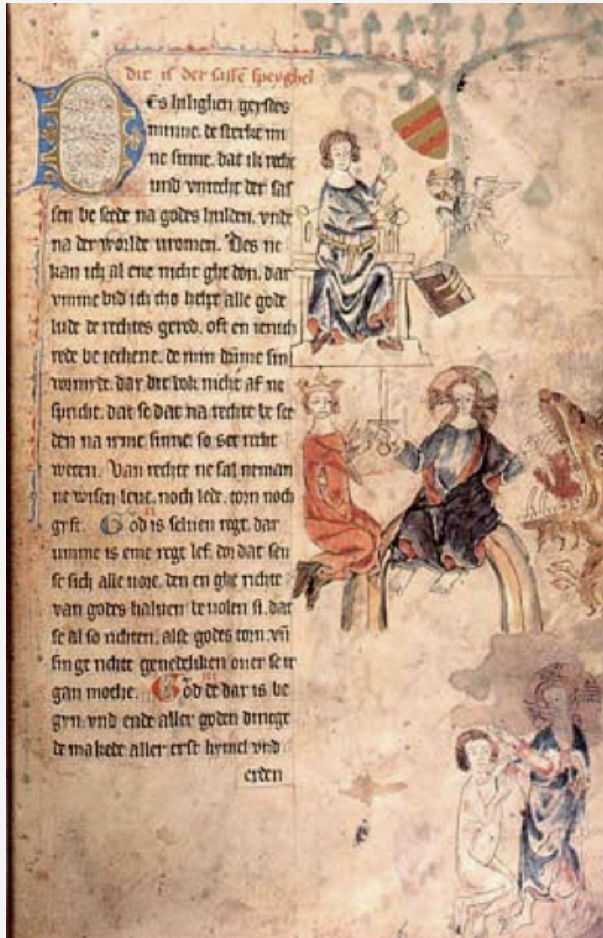 dit is der sassē speyghel
Des hilighen geystes
minne. de sterke mi
ne sinne. dat ik recht
und vnrecht der sas
sen be scede na godes hulden. vnde
na der worlde vromen. Des ne
kan ich al ene nicht ghe don. dar
vmme bid ich tho helpe alle gode
lude de rechtes gered. oft en iench
rede be ieghene. de min dūme sin
vormyde. dar dit bok nicht af ne
spricht. dat se dat na rechte be sce
den na irme sinne. so see recht
weten. Van rechte ne sal neman
ne wisen leue. noch lede. torn noch
gyft. God is seluen regt. dar
umme is eme regt lef. doı dat sen
se sich alle vore. den en ghe richte
van godes haluen be uolen si. dat
se al so richten. alse godes torn. vn̄
sin ge richte genedeliken ouer se ir
gan moche. God de dar is be
gyn. vnd ende aller goden dinege
de makede aller erst hymel vnd
erden